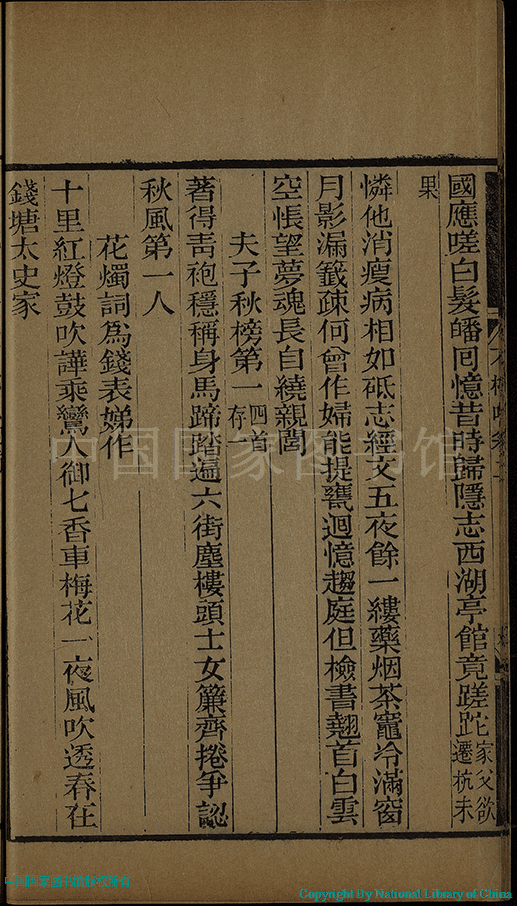 國應嗟白髮皤回憶昔時歸隱志西湖亭館竟蹉跎家父欲遷杭未
果
憐他消瘦病相如砥志經文五夜餘一縷藥烟茶竈冷滿窗
月影漏籤疎何曾作婦能提甕迴憶趨庭但檢書翹首白雲
空悵望夢魂長自繞親閭
夫子秋榜第一四首存一
著得青袍穩稱身馬蹄踏遍六街塵樓頭士女簾齊捲爭認
秋風第一人
花燭詞爲錢表娣作
十里紅燈鼓吹譁乘鸞人御七香車梅花一夜風吹透春在
錢塘太史家
中国国家图书馆
Copyright By National Library of China